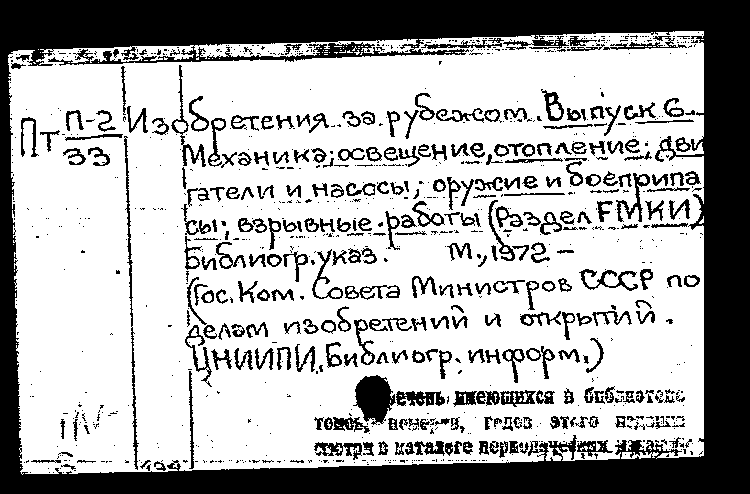 Пт П-2 Изобретения за рубежом. Выпуск 6.
33 Механика; освещение, отопление; дви
гатели и насосы; оружие и боеприпа
сы; взрывные работы (Раздел F МКИ)
Библиогр. указ. М., 1972 –
(Гос. Ком. Совета Министров СССР по
делам изобретений и открытий.
ЦНИИПИ. Библиогр. информ.)
речень имеющихся в библиотеке
томов, номеров, годов этого издания
смотри в каталоге периодических изданий